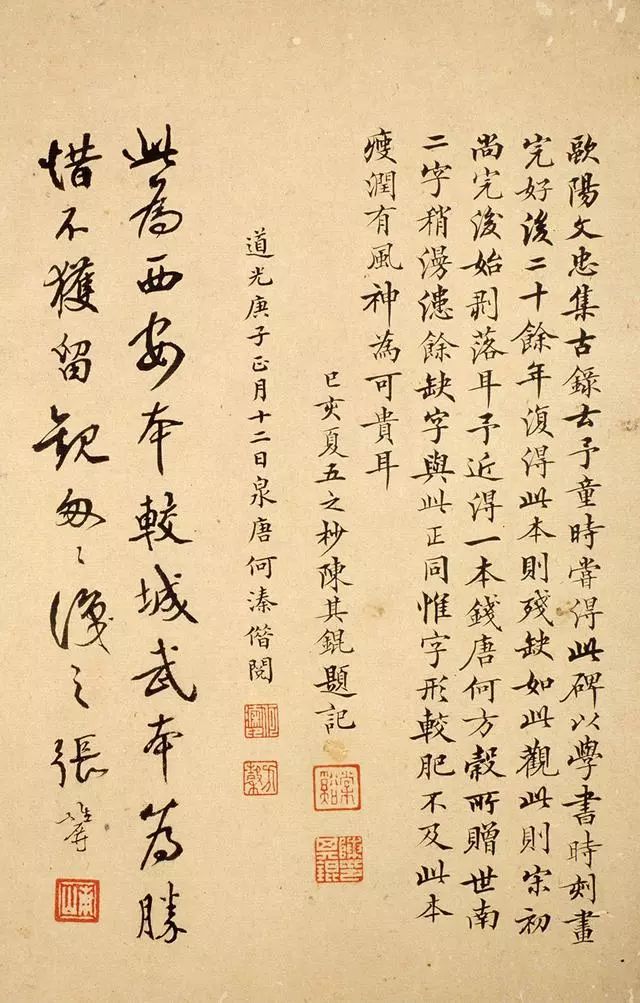 歐陽文忠集古錄云予童時嘗得此碑以學書時刻畫
完好後二十餘年復得此本則殘缺如此觀此則宋初
尚完後始剥落耳予近得一本錢唐何方穀所贈世南
二字稍漫漶餘缺字與此正同惟字形較肥不及此本
瘦潤有風神為可貴耳
已亥夏五之杪陳其錕題記
棠谿
道光庚子正月十二日泉唐何溱偕閱
方穀
此為西安本較城武本為勝
惜不獲留觀匆〻識之張